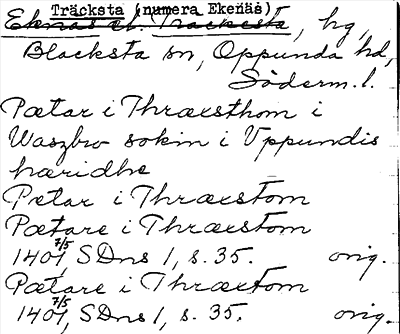 Träcksta (numera Ekenäs)
Ekenäs el. Träckesta, hg,
Blacksta sn, Oppunda hd,
Söderm. l.
Pætar i Thræcsthom i
Waszbro sokin i Uppundis
hæridhe
Petar i Thræcstom
Pætare i Thræcstom
1401 7/5, SDns 1, s. 35. orig.
Pætare i Thræcstom
1401 7/5, SDns 1, s. 35. orig.